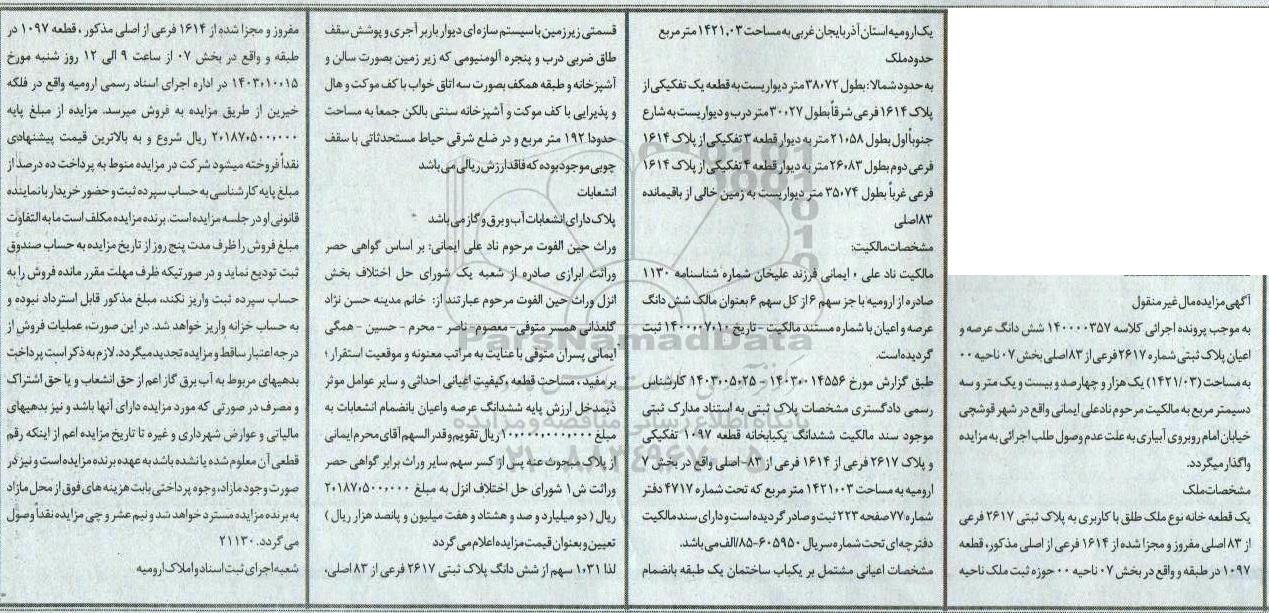 آگهی مزایده مال غیر منقول
به موجب پرونده اجرائی کلاسه ۱۴۰۰۰۰۳۵۷ شش دانگ عرصه و
اعیان پلاک ثبتی شماره ۲۶۱۷ فرعی از ۸۳ اصلی بخش ۰۷ ناحیه ۰۰
به مساحت (۱۴۲۱/۰۳) یک هزار و چهارصد و بیست و یک متر و سه
دسیمتر مربع به مالکیت مرحوم نادعلی ایمانی واقع در شهر قوشچی
خیابان امام روبروی آبیاری به علت عدم وصول طلب اجرائی به مزایده
واگذار میگردد.
مشخصات ملک
یک قطعه خانه نوع ملک طلق با کاربری به پلاک ثبتی ۲۶۱۷ فرعی
از ۸۳ اصلی مفروز و مجزا شده از ۱۶۱۴ فرعی از اصلی مذکور، قطعه
۱۰۹۷ در طبقه و واقع در بخش ۰۷ ناحیه ۰۰ حوزه ثبت ملک ناحیه
یک ارومیه استان آذربایجان غربی به مساحت ۱۴۲۱,۰۳ متر مربع
حدود ملک
به حدود شمالا: بطول ۳۸,۷۲ متر دیواریست به قطعه یک تفکیکی از
پلاک ۱۶۱۴ فرعی شرقاً بطول ۳۰,۲۷ متر درب و دیواریست به شارع
جنوباً اول بطول ۲۱,۵۸ متر به دیوار قطعه ۳ تفکیکی از پلاک ۱۶۱۴
فرعی دوم بطول ۲۶,۸۳ متر به دیوار قطعه ۴ تفکیکی از پلاک ۱۶۱۴
فرعی غرباً بطول ۳۵,۷۴ متر دیواریست به زمین خالی از باقیمانده
۸۳ اصلی
مشخصات مالکیت:
مالکیت ناد علی ، ایمانی فرزند علیخان شماره شناسنامه ۱۱۳۰
صادره از ارومیه با جز سهم ۶ از کل سهم ۶ بعنوان مالک شش دانگ
عرصه و اعیان با شماره مستند مالکیت - تاریخ ۱۴۰۰,۰۷,۱۰ ثبت
گردیده است.
طبق گزارش مورخ ۱۴۰۳,۰۱۴۵۵۶ - ۱۴۰۳,۰۵,۲۵ کارشناس
رسمی دادگستری مشخصات پلاک ثبتی به استناد مدارک ثبتی
موجود سند مالکیت ششدانگ یکبابخانه قطعه ۱۰۹۷ تفکیکی
و پلاک ۲۶۱۷ فرعی از ۱۶۱۴ فرعی از ۸۳- اصلی واقع در بخش ۷
ارومیه به مساحت ۱۴۲۱,۰۳ متر مربع که تحت شماره ۴۷۱۷ دفتر
شماره ۷۷ صفحه ۲۲۳ ثبت و صادر گردیده است و دارای سند مالکیت
دفترچه ای تحت شماره سریال ۶۰۵۹۵۰-۸۵/الف می باشد.
مشخصات اعیانی مشتمل بر یکباب ساختمان یک طبقه بانضمام
قسمتی زیرزمین با سیستم سازه ای دیوار باربر آجری و پوشش سقف
طاق ضربی درب و پنجره آلومنیومی که زیر زمین بصورت سالن و
آشپزخانه و طبقه همکف بصورت سه اتاق خواب با کف موکت و هال
و پذیرایی با کف موکت و آشپزخانه سنتی بالکن جمعا به مساحت
حدودا ۱۹۲ متر مربع و در ضلع شرقی حیاط مستحدثاتی با سقف
چوبی موجود بوده که فاقد ارزش ریالی می باشد
انشعابات
پلاک دارای انشعابات آب و برق و گاز می باشد
وراث حین الفوت مرحوم ناد علی ایمانی: بر اساس گواهی حصر
وراثت ابرازی صادره از شعبه یک شورای حل اختلاف بخش
انزل وراث حین الفوت مرحوم عبارتند از: خانم مدینه حسن نژاد
گلعذانی همسر متوفی- معصوم- ناصر - محرم - حسین - همگی
ایمانی پسران متوفی با عنایت به مراتب معنونه و موقعیت استقرار ؛
بر مفید ، مساحت قطعه ،کیفیت اعیانی احداثی و سایر عوامل موثر
ذیمدخل ارزش پایه ششدانگ عرصه واعیان بانضمام انشعابات به
مبلغ ۱۰,۰۰۰,۰۰۰,۰۰۰ ریال تقویم و قدر السهم آقای محرم ایمانی
از پلاک مبحوث عنه پس از کسر سهم سایر وراث برابر گواهی حصر
وراثت ش۱ شورای حل اختلاف انزل به مبلغ ۲,۱۸۷,۵۰۰,۰۰۰
ریال ( دو میلیارد و صد و هشتاد و هفت میلیون و پانصد هزار ریال )
تعیین و بعنوان قیمت مزایده اعلام می گردد
لذا ۱,۳۱ سهم از شش دانگ پلاک ثبتی ۲۶۱۷ فرعی از ۸۳ اصلی،
مفروز و مجزا شده از ۱۶۱۴ فرعی از اصلی مذکور ، قطعه ۱۰۹۷ در
طبقه و واقع در بخش ۰۷ از ساعت ۹ الی ۱۲ روز شنبه مورخ
۱۴۰۳,۱۰,۱۵ در اداره اجرای اسناد رسمی ارومیه واقع در فلکه
خیبرین از طریق مزایده به فروش میرسد. مزایده از مبلغ پایه
۲,۱۸۷,۵۰۰,۰۰۰ ریال شروع و به بالاترین قیمت پیشنهادی
نقداً فروخته میشود شرکت در مزایده منوط به پرداخت ده درصد از
مبلغ پایه کارشناسی به حساب سپرده ثبت و حضور خریدار با نماینده
قانونی او در جلسه مزایده است. برنده مزایده مکلف است ما به التفاوت
مبلغ فروش را ظرف مدت پنج روز از تاریخ مزایده به حساب صندوق
ثبت تودیع نماید و در صورتیکه ظرف مهلت مقرر مانده فروش را به
حساب سپرده ثبت واریز نکند، مبلغ مذکور قابل استرداد نبوده و
به حساب خزانه واریز خواهد شد. در این صورت، عملیات فروش از
درجه اعتبار ساقط و مزایده تجدید میگردد. لازم به ذکر است پرداخت
بدهیهای مربوط به آب برق گاز اعم از حق انشعاب و یا حق اشتراک
و مصرف در صورتی که مورد مزایده دارای آنها باشد و نیز بدهیهای
مالیاتی و عوارض شهرداری و غیره تا تاریخ مزایده اعم از اینکه رقم
قطعی آن معلوم شده یا نشده باشد به عهده برنده مزایده است و نیز در
صورت وجود مازاد، وجوه پرداختی بابت هزینه های فوق از محل مازاد
به برنده مزایده مسترد خواهد شد و نیم عشر و چی مزایده نقداً وصول
می گردد. ۲۱۱۳۰
شعبه اجرای ثبت اسناد و املاک ارومیه
ParsNamadData